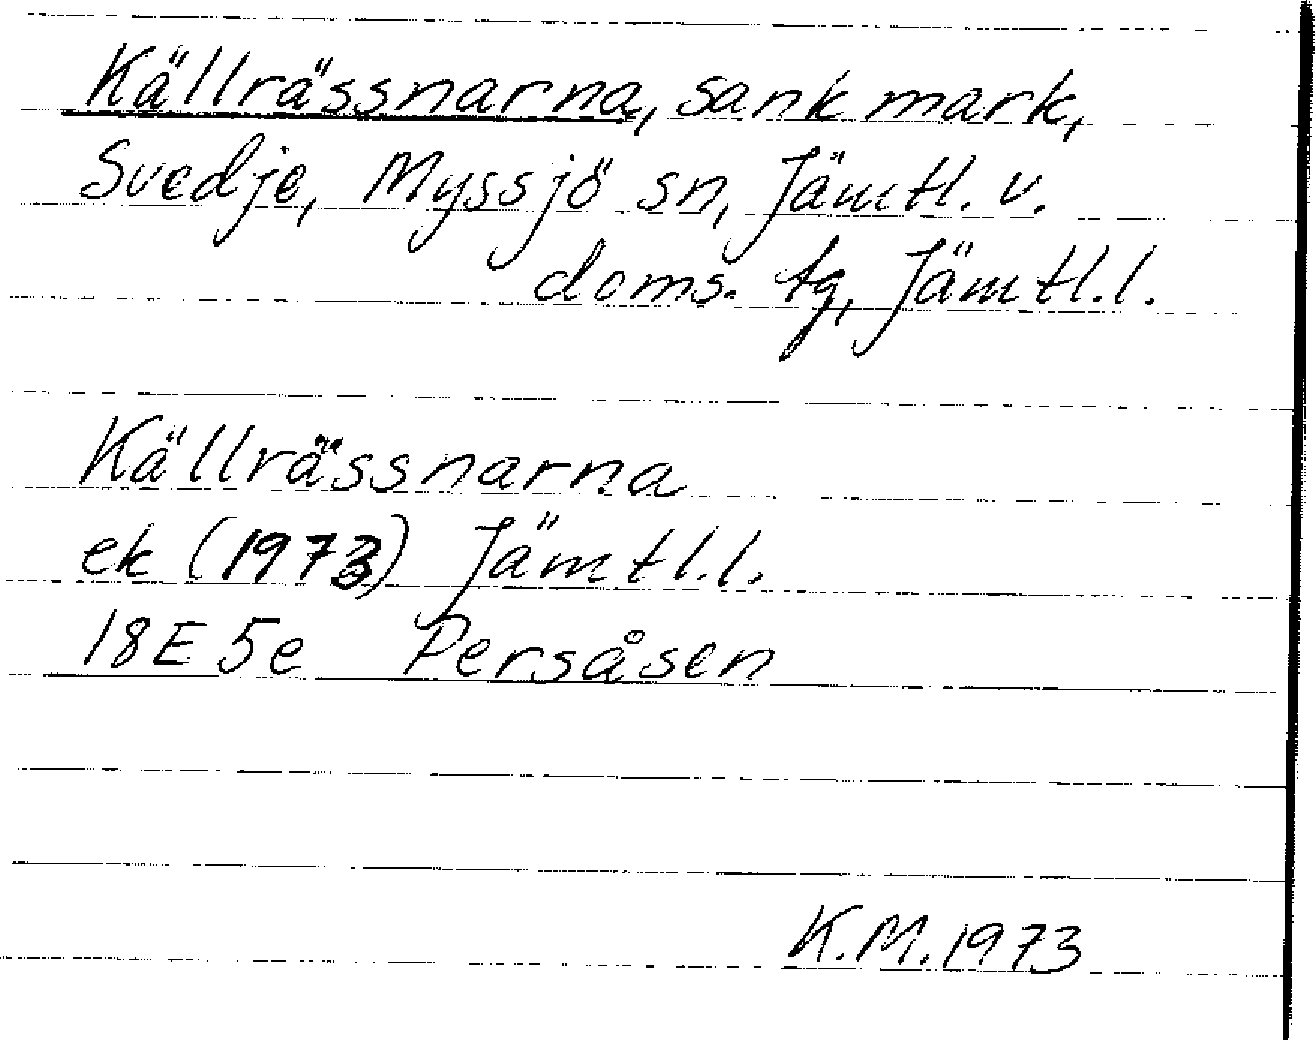 Källrässnarna, sank mark,
Svedje, Myssjö sn, Jämtl. v.
doms. tg, Jämtl. l.
Källrässnarna
ek (1973) Jämtl. l.
18E 5e Persåsen
K.M. 1973